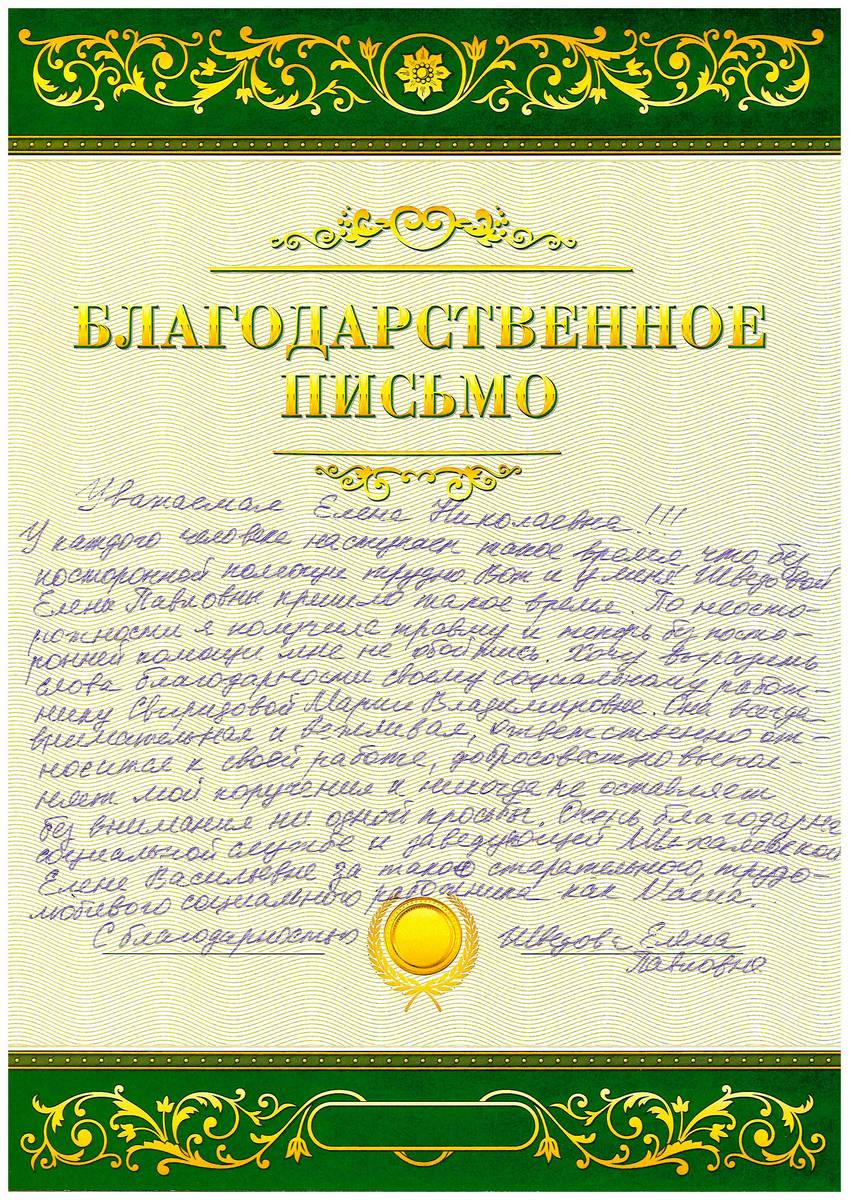 БЛАГОДАРСТВЕННОЕ
ПИСЬМО
Уважаемая Елена Николаевна!!!
У каждого человека наступает такое время что без
посторонной помощи трудно. Вот и у меня Шведовой
Елены Павловны пришло такое время. По неосто-
рожности я получила травму и теперь без посто-
ронней помощи мне не обойтись. Хочу выразить
слова благодарности своему социальному работ-
нику Свиридовой Марии Владимировне. Она всегда
внимательная и вежливая, ответственно от-
носится к своей работе, добросовестно выпол-
няет мои поручения и никогда не оставляет
без внимания ни одной просьбы. Очень благодарна
социальной службе и заведующей Михалевской
Елене Васильевне за такого старательного, трудо-
любивого социального работника как Маша.
С благодарностью Шведова Елена
Павловна